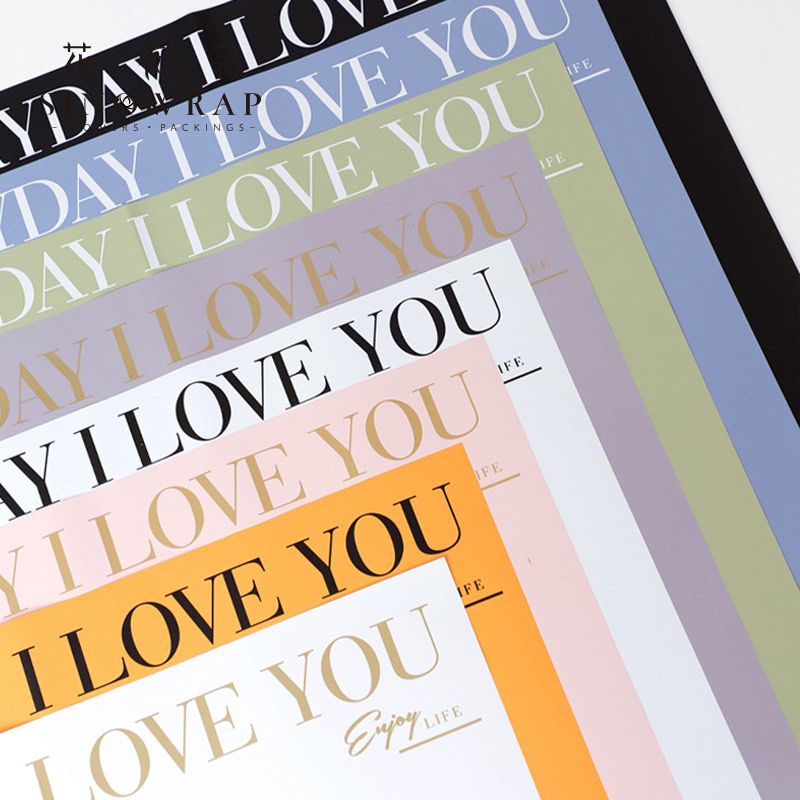 YDAY I LOVE YOU
WRAP
PACKINGS-
YDAY I LOVE YOU
IFE
DAY I LOVE YOU
LIFE
DAY I LOVE YOU
IFE
AY I LOVE YOU
IFE
Y I LOVE YOU
LIFE
I LOVE YOU
IFE
LOVE YOU
Enjoy LIFE